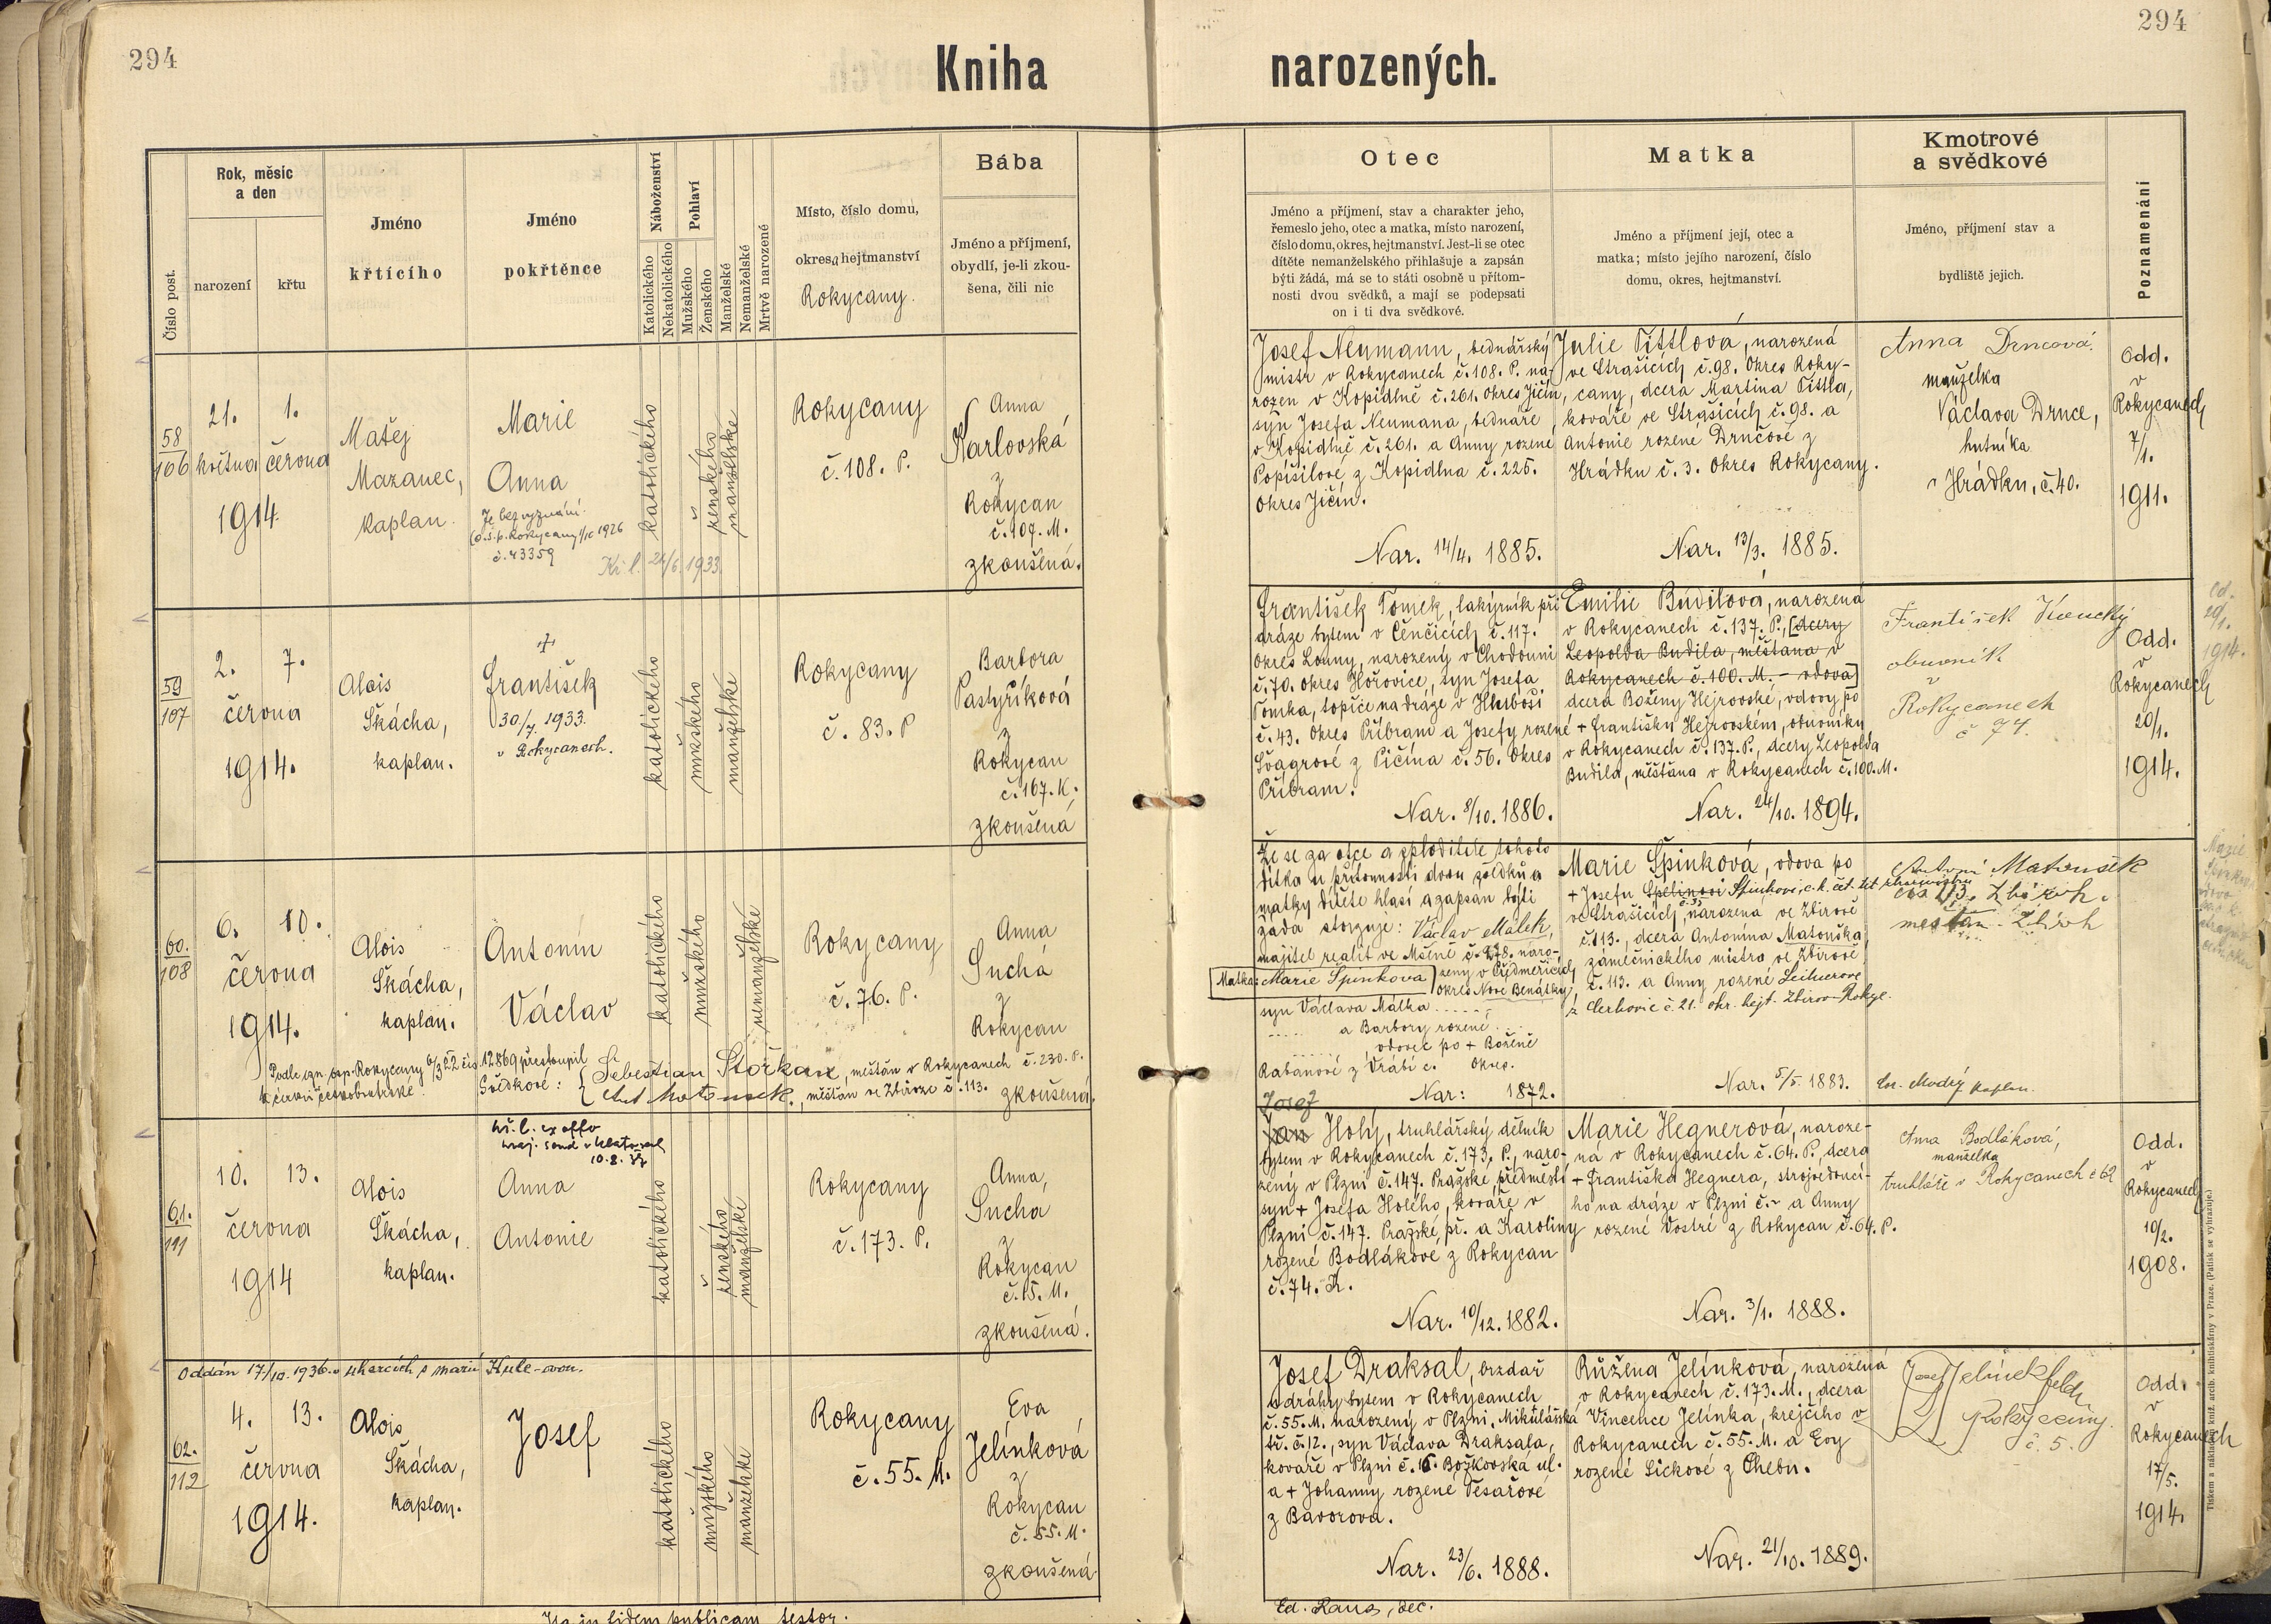 294
294
Kniha narozených.
Číslo post.
Rok, měsíc
a den
narození
křtu
Jméno
křtícího
Jméno
pokřtěnce
Náboženství
Katolického
Nekatolického
Pohlaví
Mužského
Ženského
Manželské
Nemanželské
Mrtvě narozené
Místo, číslo domu,
okres a hejtmanství
Rokycany.
Bába
Jméno a příjmení,
obydlí, je-li zkou-
šena, čili nic
Otec
Jméno a příjmení, stav a charakter jeho,
řemeslo jeho, otec a matka, místo narození,
číslo domu, okres, hejtmanství. Jest-li se otec
dítěte nemanželského přihlašuje a zapsán
býti žádá, má se to státi osobně u přítom-
nosti dvou svědků, a mají se podepsati
on i ti dva svědkové.
Matka
Jméno a příjmení její, otec a
matka; místo jejího narození, číslo
domu, okres, hejtmanství.
Kmotrové
a svědkové
Jméno, příjmení stav a
bydliště jejich.
Poznamenání
58
106
21.
května
1.
června
1914.
Matěj
Mazanec,
kaplan.
Marie
Anna
Je bez vyznání.
č. 43359
24/6 1933.
katolického
ženského
manželské
Rokycany
č. 108. P.
Anna
Karlovská
z
Rokycan
č. 107. M.
zkoušená.
Josef Neumann, bednářský
mistr v Rokycanech č. 108. P. na-
rozen v Kopidlně č. 261. Okres Jičín,
syn Josefa Neumana, bednáře
v Kopidlně č. 261. a Anny rozené
Popíšilové z Kopidlna č. 225.
Okres Jičín.
Nar. 14/4. 1885.
Julie Tittlová, narozená
ve Strašicích č. 98. Okres Roky-
cany, dcera Martina Tittla,
kováře ve Strašicích č. 98. a
Antonie rozené Drncové z
Hrádku č. 3. Okres Rokycany.
Nar. 13/3. 1885.
Anna Drncová.
manželka
Václava Drnce,
hutníka
v Hrádku, č. 40.
Odd.
v
Rokycanech
7/1.
1911.
59
107
2.
7.
června
1914.
Alois
Škácha,
kaplan.
+
František
30/7. 1933.
v Rokycanech.
katolického
mužského
manželské
Rokycany
č. 83. P
Barbora
Pastyříková
z
Rokycan
č. 167. K.
zkoušená
František Tomek, lakýrník při
dráze bytem v Čenčicích č. 117.
Okres Louny, narozený v Chodouni
č. 70. Okres Hořovice, syn Josefa
Tomka, topiče na dráze v Hluboši
č. 43. Okres Příbram a Josefy rozené
Švagrové z Pičína č. 56. Okres
Příbram.
Nar. 8/10. 1886.
Emilie Budilová, narozená
v Rokycanech č. 137. P., [dcery
Leopolda Budila, měšťana v
Rokycanech č. 100. M. - vdova]
dcera Boženy Hejrovské, vdovy po
+ Františku Hejrovském, obuvníku
v Rokycanech č. 137. P., dcery Leopolda
Budila, měšťana v Rokycanech č. 100. M.
Nar. 24/10. 1894.
František Koucký
obuvník
v
Rokycanech
č 74.
Odd.
v
Rokycanech
20/1.
1914.
60.
108
6.
10.
června
1914.
Alois
Škácha,
kaplan.
Antonín
Václav
katolického
mužského
nemanželské
Rokycany
č. 76. P.
Anna
Suchá
z
Rokycan
zkoušená.
Že se za otce a zploditele tohoto
dítka u přítomnosti dvou svědků a
matky dítěte hlásí a zapsán býti
žádá stvrzuje: Václav Málek,
majitel realit ve Mšeně č. 278. naro-
zený v Předměřicích
Okres Nové Benátky
Matka: Marie Špinkova
syn Václava Málka
a Barbory rozené
vdovec po + Boženě
Rabanové z Vrábí č. Okres.
Nar: 1872.
Marie Špinková, vdova po
+ Josefu Špinkovi, c. k. čet.
ve Strašicích, narozená ve Zbirově
č. 113., dcera Antonína Matouška
zámečnického mistra ve Zbirově
č. 113. a Anny rozené
z Cerhovic č. 21. okr. hejt.
Nar. 5/5. 1883.
Antonín Matoušek
Zbiroh.
měšťan Zbiroh
kaplan.
přestoupil
k církvi českobratrské.
Svědkové: Šebestian Štorkan, měšťan v Rokycanech č. 230. P.
Ant Matoušek, měšťan ve Zbiroze č. 113.
61.
111
10.
13.
června
1914
Alois
Škácha,
kaplan.
Anna
Antonie
katolického
ženského
manželské
Rokycany
č. 173. P.
Anna,
Suchá
z
Rokycan
č. 15. M.
zkoušená.
Josef
Jan Holý, truhlářský dělník
bytem v Rokycanech č. 173, P., naro-
zený v Plzni č. 147. Pražské předměstí
syn + Josefa Holého, kováře v
Plzni č. 147. Pražské př. a Karoliny
rozené Bodlákové z Rokycan
č. 74. K.
Nar. 10/12. 1882.
Marie Hegnerová, naroze-
ná v Rokycanech č. 64. P., dcera
+ Františka Hegnera, strojvedoucí-
ho na dráze v Plzni č. ~ a Anny
rozené Vostré z Rokycan č. 64. P.
Nar. 3/1. 1888.
Anna Bodláková,
manželka
truhláře v Rokycanech č 62
Odd.
v
Rokycanech
10/2.
1908.
Oddán 17/10. 1936.
62.
112
4.
13.
června
1914.
Alois
Škácha,
kaplan.
Josef
katolického
mužského
manželské
Rokycany
č. 55. M.
Eva
Jelínková
z
Rokycan
č. 55. M.
zkoušená.
Josef Draksal, brzdař
dráhy bytem v Rokycanech
č. 55. M. narozený v Plzni, Mikulášská
tř. č. 12., syn Václava Draksala,
kováře v Plzni č. 16. Božkovská ul.
a + Johanny rozené Tesařové
z Bavorova.
Nar. 23/6. 1888.
Růžena Jelínková, narozená
v Rokycanech č. 173. M., dcera
Vincence Jelínka, krejčího v
Rokycanech č. 55. M. a Evy
rozené Lickové z Chebu.
Nar. 21/10. 1889.
Josef Jelínek
Rokycany.
č. 5.
Odd.
v
Rokycanech
17/5.
1914.
in fidem publicam testor.